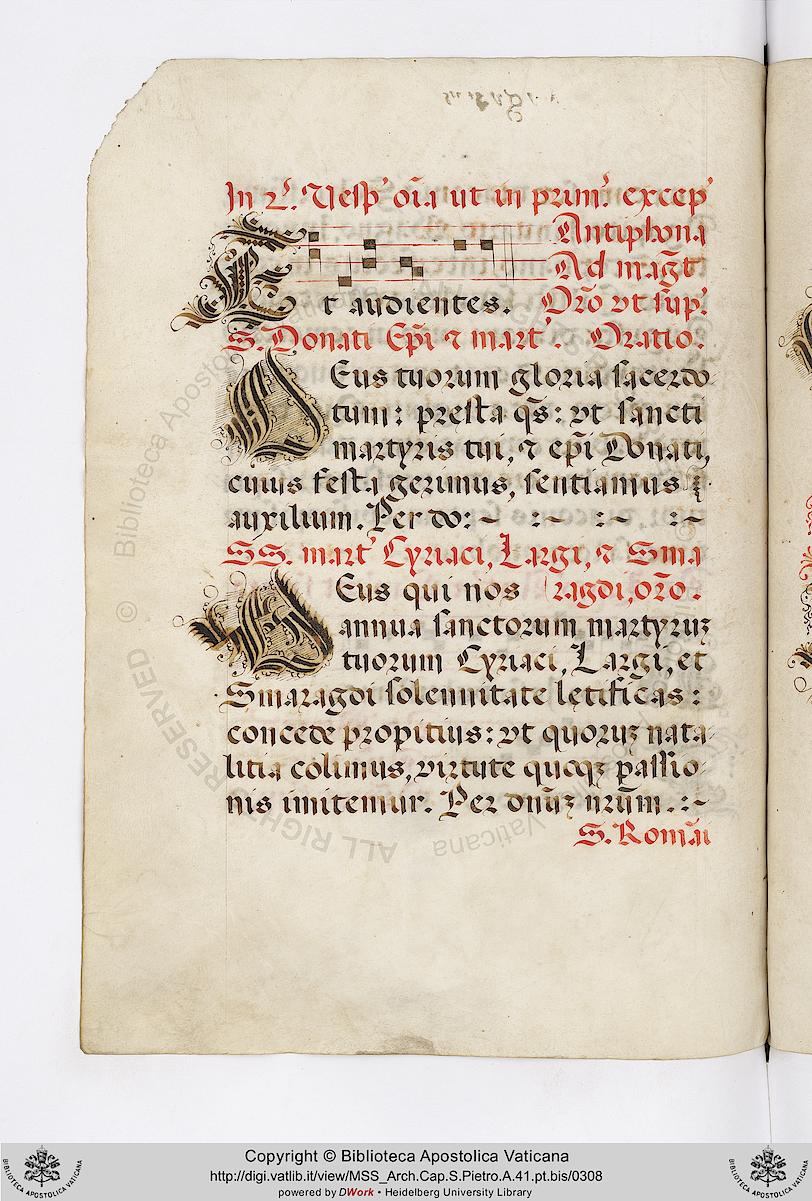 In 2.ͣ Vesp' oīa ut in primˢ excep'
Antiphona
Ad mag̃t
Et audientes. Orõ vt sup.ͣ
S. Donati Ep̃i ⁊ mart'. Oratio.
DEus tuorum gloria sacerdo
tum: presta q̃s: vt sancti
martyris tui, ⁊ ep̃i Donati,
cuius festa gerimus, sentiamus
auxilium. Per do:~ :~ :~ :~
SS. mart' Cyriaci, Largi, ⁊ Sma
DEus qui nos ragdi, orõ.
annua sanctorum martyruꝫ
tuorum Cyriaci, Largi, et
Smaragdi solennitate lętificas:
concede propitius: vt quoruꝫ nata
litia colimus, virtute quoqꝫ passio
nis imitemur. Per dñuꝫ nrũm.:~
S. Romãi
© Biblioteca Apostolica Vaticana
ALL RIGHTS RESERVED
Copyright © Biblioteca Apostolica Vaticana
http://digi.vatlib.it/view/MSS_Arch.Cap.S.Pietro.A.41.pt.bis/0308
powered by DWork • Heidelberg University Library
BIBLIOTECA APOSTOLICA VATICANA
BIBLIOTECA APOSTOLICA VATICANA